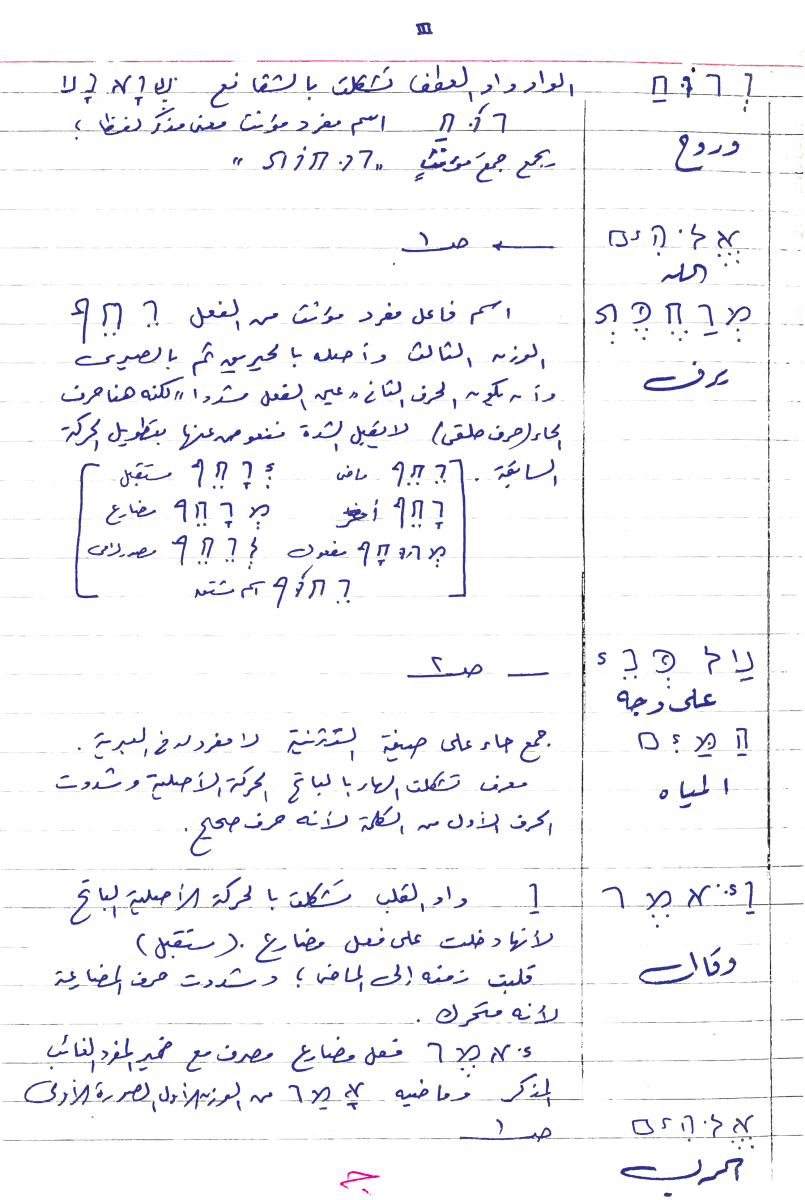 III
וְרוּחַ الواو واو العطف تشكلت بالشفا نع
רוּחַ اسم مفرد مؤنث معنى مذكر لفظا ؛
وروح
يجمع جمع مؤنث "רוּחוֹת"
אֱלֹהִים ← صـ ١
الله
מְרַחֶפֶת اسم فاعل مفرد مؤنث من الفعل רִחֵף
الوزن الثالث وأصله بالحيريق ثم بالصيرى
يرف
وأن يكون الحرف الثاني "عين الفعل مشددا" لكنه هنا حرف
الحاء (حرف حلقي) لا يقبل الشدة فنعوض عنها بتطويل الحركة
السابقة . [ רֵחֵף ماض יְרָחֵף مستقبل
רָחֵף أمر מְרָחֵף مضارع
مفعول לְרַחֵף مصدر لامي
רֵחוּף اسم مشتق ]
עַל פְּנֵי — صـ ٢
على وجه
הַמַּיִם جمع جاء على صيغة التثنية لا مفرد له في العبرية .
المياه
معرف تشكلت الهاء بالباتح الحركة الأصلية وشددت
الحرف الأول من الكلمة لأنه حرف صحيح .
וַיֹּאמֶר וַ واو القلب تشكلت بالحركة الأصلية الباتح
لأنها دخلت على فعل مضارع . (مستقبل)
وقال
قلبت زمنه إلى الماضى ؛ وشددت حرف المضارعة
لأنه متحرك .
יֹאמֶר فعل مضارع مصرف مع ضمير المفرد الغائب
المذكر وماضيه אָמַר من الوزن الأول الصورة الأولى
אֱלֹהִים صـ ١
الرب